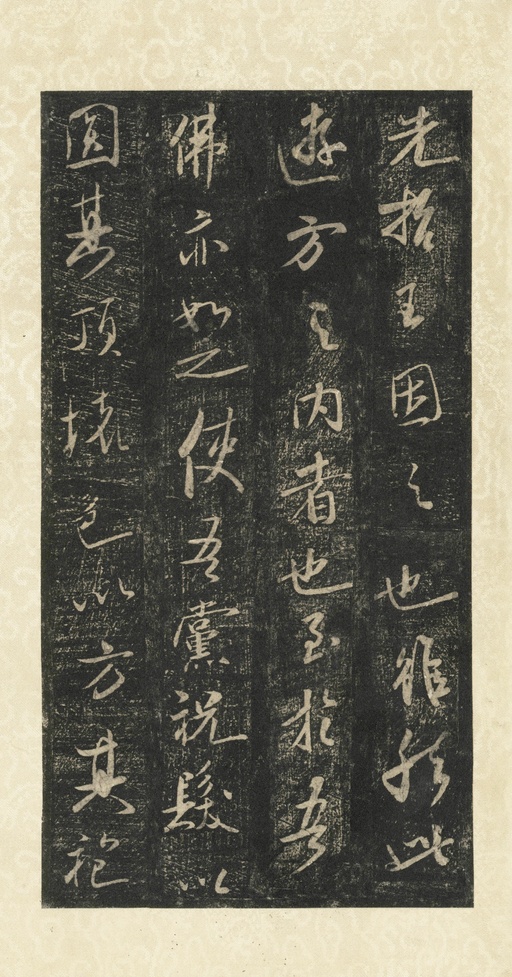 先哲王因之也雖然此
遊方之內者也至於吾
佛亦如之使吾黨祝髮以
圓其頂壞色以方其袍